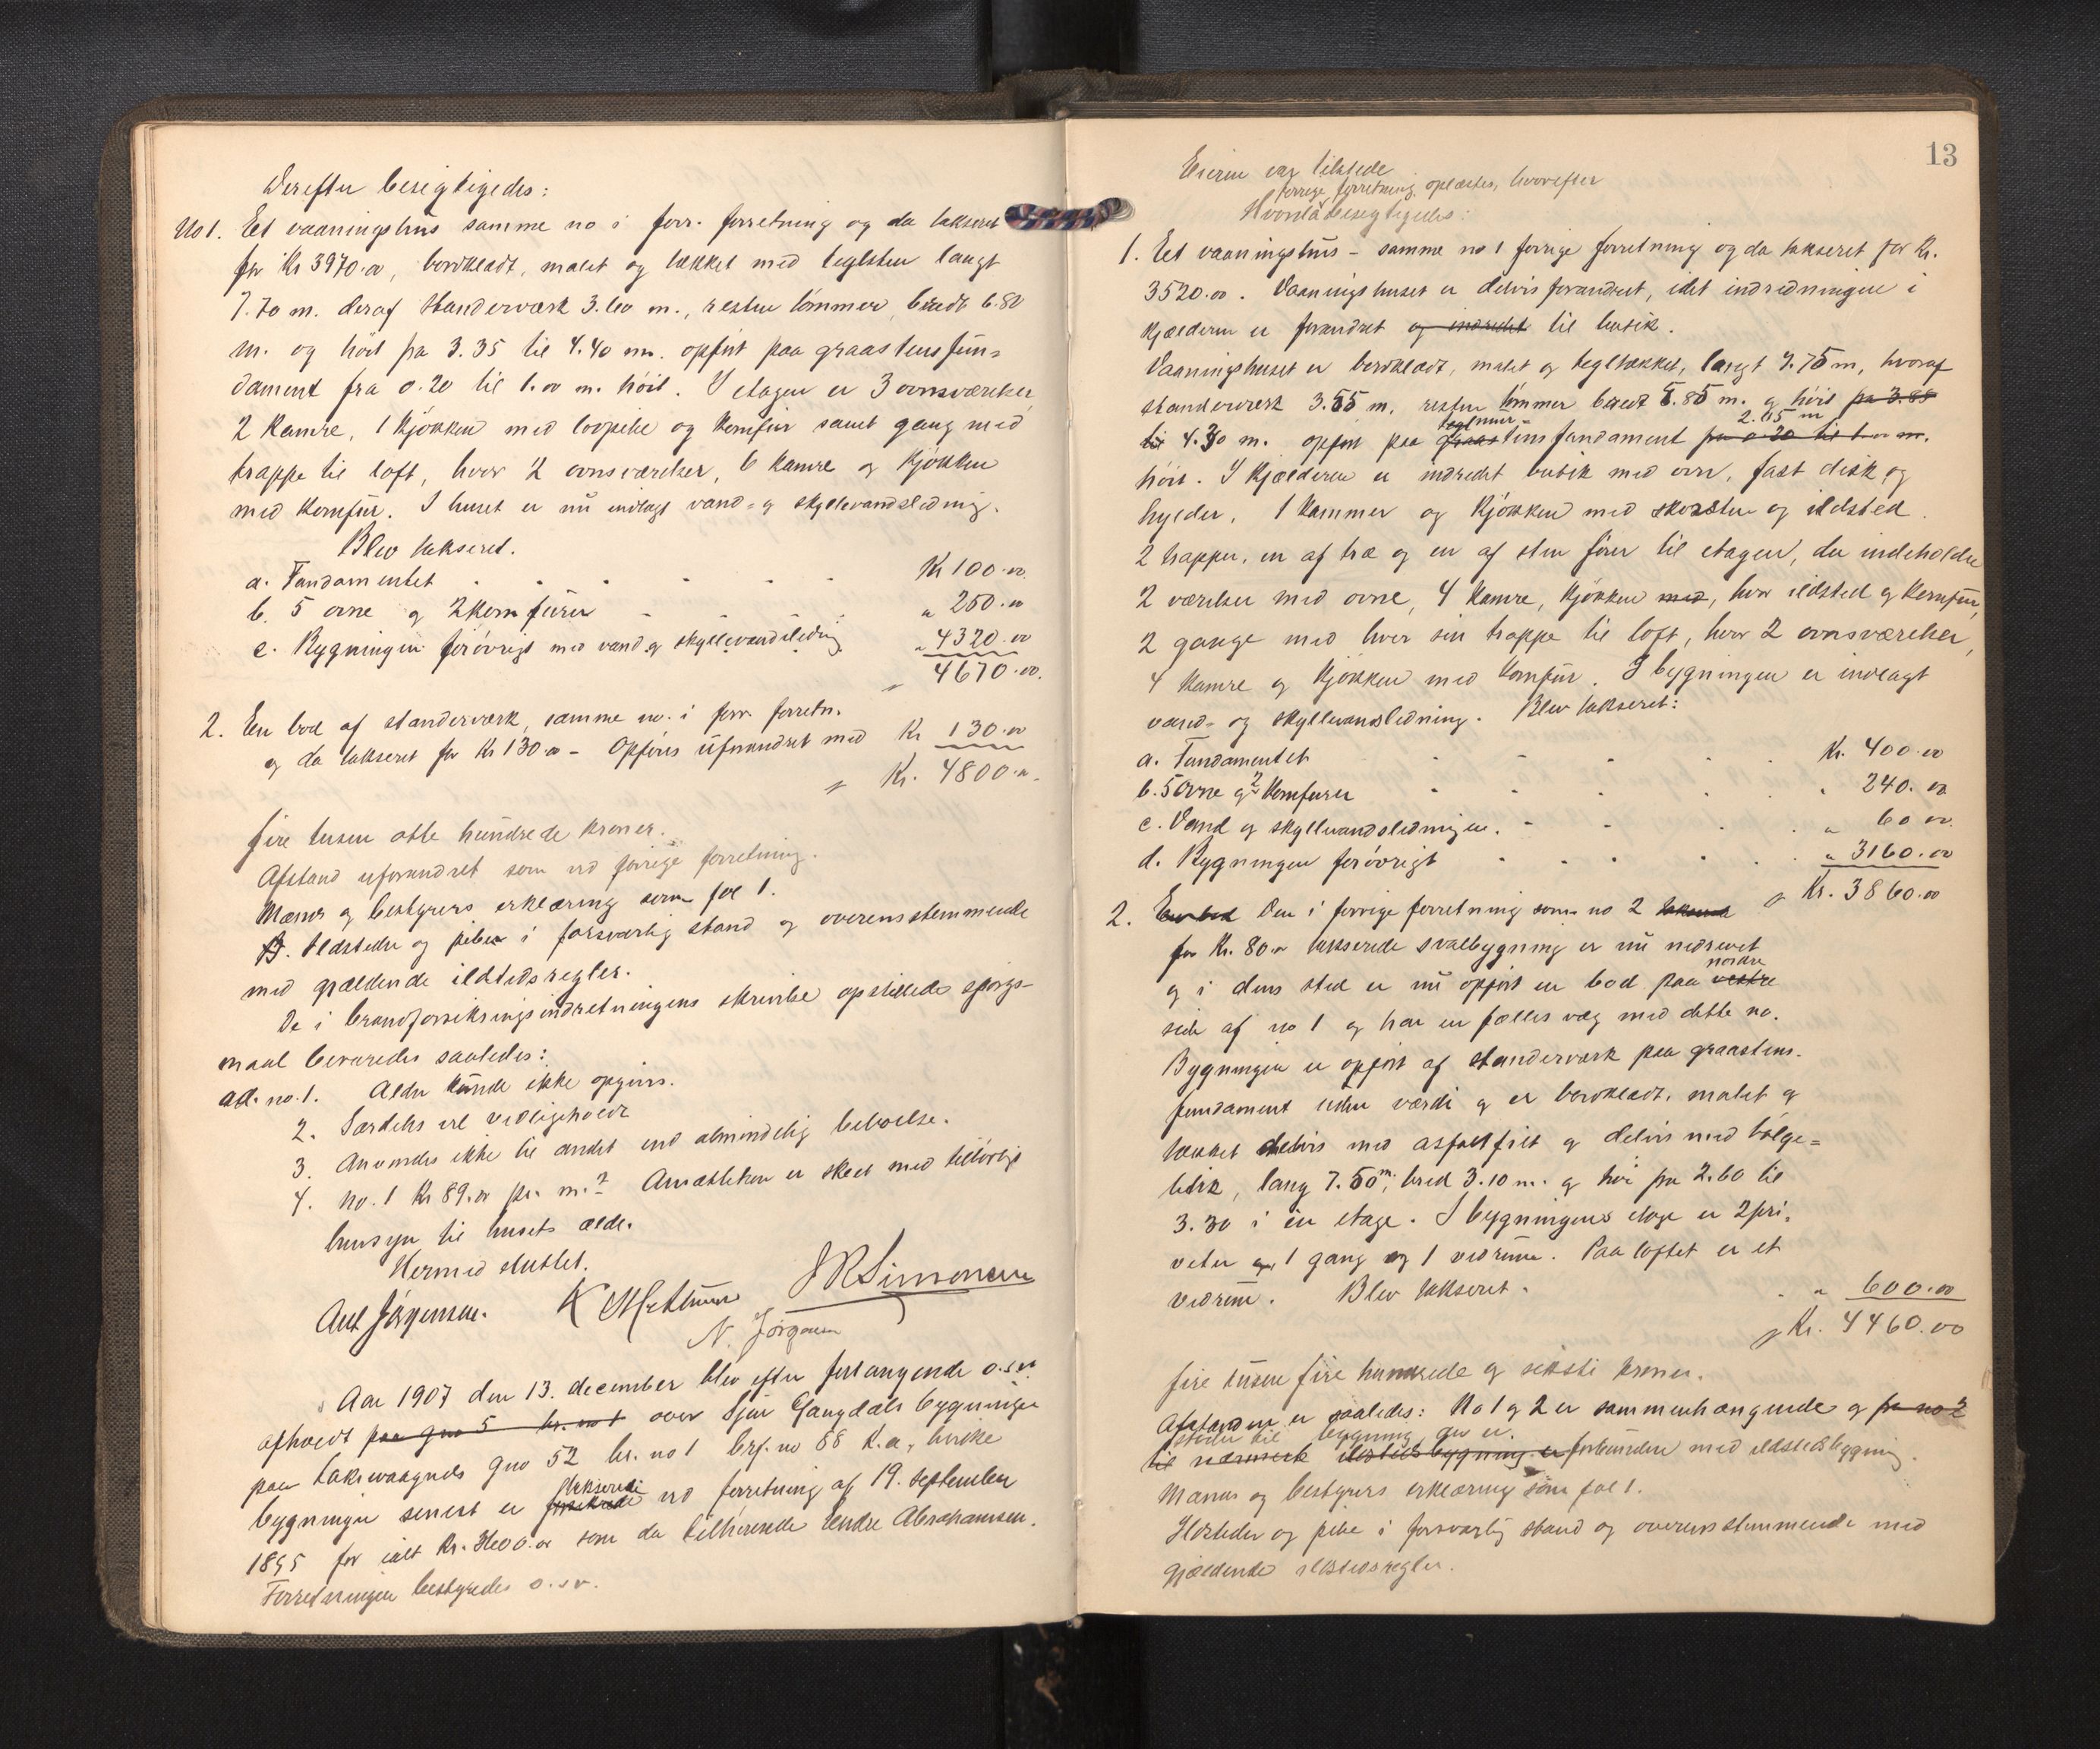 Derefter besigtigedes:
No 1. Et vaaningshus samme no i forr. forretning og da takseret
for Kr 3970.00, bordklædt, malet og tækket med teglsten langt
7.70 m. deraf standerværk 3.60 m., resten tømmer, bredt 6.80
m. og høit fra 3.35 til 4.40 m. opført paa graastensfun-
dament fra 0.20 til 1.00 m. høit. I etagen er 3 ovnsværelser,
2 kamre, 1 kjøkken med komfur samt gang med
trappe til loft, hvor 2 ovnsværelser, 6 kamre og kjøkken
med komfur. I huset er nu indlagt vand- og skyllevandsledning.
Blev takseret.
a. Fundamentet Kr 100.00
b. 5 ovne og 2 komfurer " 250.00
c. Bygningen forøvrigt med vand og skyllevandsledning " 4320.00
4670.00.
2. En bod af standerværk, samme no. i forr. forretn.
og da takseret for Kr 130.00 - Opføres uforandret med Kr 130.00
Kr. 4800.00.
fire tusen otte hundrede kroner.
Afstand uforandret som ved forrige forretning.
Mænds og bestyrers erklæring som fol 1.
Ildsteder og piber i forsvarlig stand og overensstemmende
med gjældende ildstedsregler.
De i brandforsikringsindretningens skrivelse opstillede spørgs-
maal bevaredes saaledes:
ad. no. 1. Alder kunde ikke opgives.
2. Særdeles vel vedligeholdt
3. Anvendes ikke til andet end almindelig beboelse.
4. no. 1 Kr 89.00 pr. m.² Ansættelsen er skeet med tilbørligt
hensyn til husets ælde.
Hermed sluttet.
Ant Jørgensen. J R Simonsen
N. Jørgensen
Aar 1907 den 13. december blev efter forlangende o.s.v.
afholdt paa gno 5 br. no 1 over Sjur Gangdals bygninger
paa Laksevaagnæs gno 52 br. no 1 brf. no 88 R.a, hvilke
bygninger senest er takserede ved forretning af 19. september
1895 for ialt Kr. 3600.00 som da tilhørende Endre Abrahamsen.
Forretningen bestyredes o.s.v.
13
Eieren var tilstede
forrige forretning oplæstes, hvorefter
Hvorda besigtigedes:
1. Et vaaningshus - samme no 1 forrige forretning og da takseret for Kr.
3520.00. Vaaningshuset er delvis forandret, idet indredningen i
kjælderen er forandret og indredet til butik.
Vaaningshuset er bordklædt, malet og tegltækket, langt 7.75 m, hvoraf
standerværk 3.55 m, resten tømmer bredt 6.85 m. og høit fra 3.85
2.05 m
til 4.30 m. opført paa graastensfundament fra 0.20 til 1.00 m.
høit. I kjælderen er indredet butik med ovn, fast disk og
hylder, 1 kammer og kjøkken med skorsten og ildsted.
2 trapper, en af træ og en af sten fører til etagen, der indeholder
2 værelser med ovne, 4 kamre, kjøkken med, hvor ildsted og komfur,
2 gange med hver sin trappe til loft, hvor 2 ovnsværelser,
4 kamre og kjøkken med komfur. I bygningen er indlagt
vand- og skyllevandsledning. Blev takseret:
a. Fundamentet Kr. 400.00
b. 5 ovne og 2 komfurer " 240.00
c. Vand og skyllevandsledningen. " 60.00
d. Bygningen forøvrigt " 3160.00
Kr. 3860.00
2. En bod Den i forrige forretning som no 2
for Kr. 80.00 takserede svalbygning er nu nedrevet
nordre
og i dens sted er nu opført en bod paa vestre
side af no 1 og har en fælles væg med dette no.
Bygningen er opført af standerværk paa graastens-
fundament uden værdi og er bordklædt, malet og
tækket delvis med asfaltfilt og delvis med bølge-
blik, lang 7.50 m, bred 3.10 m. og høi fra 2.60 til
3.30 i én etage. I bygningens etage er 2 pri-
veter og 1 gang og 1 vedrum. Paa loftet er et
vedrum. Blev takseret. " 600.00
Kr. 4460.00
fire tusen fire hundrede og seksti kroner.
Afstanden er saaledes: No 1 og 2 er sammenhængende og fra no 2
til nærmeste ildstedsbygning er forbunden med ildstedsbygning.
Mænds og bestyrers erklæring som fol 1.
Ildsteder og pibe i forsvarlig stand og overensstemmende med
gjældende ildstedsregler.